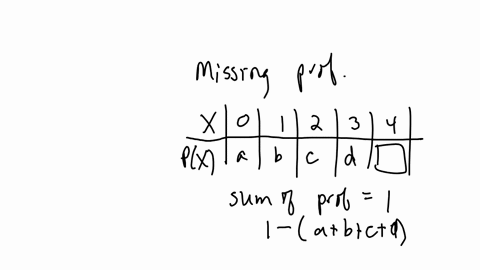 Missing prob.
X | 0 | 1 | 2 | 3 | 4 |
P(X) | a | b | c | d | □
sum of prob = 1
1 - (a+b+c+d)